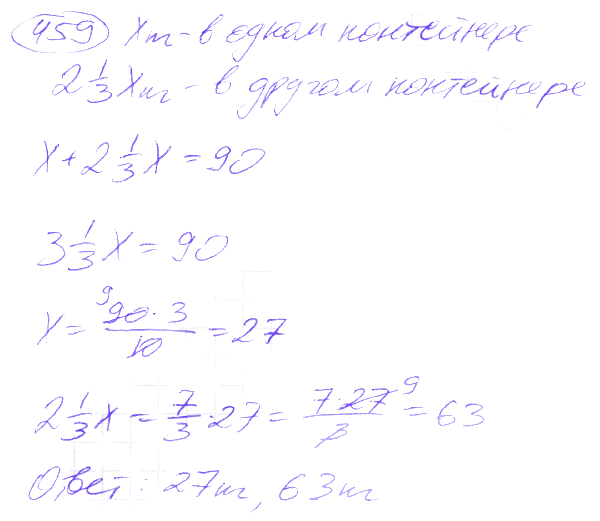 459 x т - в одном контейнере
2 1/3 x т - в другом контейнере
x + 2 1/3 x = 90
3 1/3 x = 90
x = 90 · 3 / 10 = 27
2 1/3 x = 7/3 · 27 = 7 · 27 / 3 = 63
Ответ: 27 т, 63 т